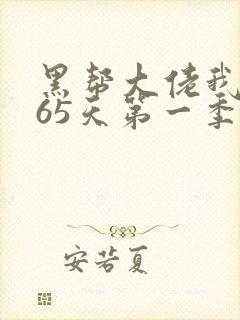 黑帮大佬我
65天第一季
安若夏